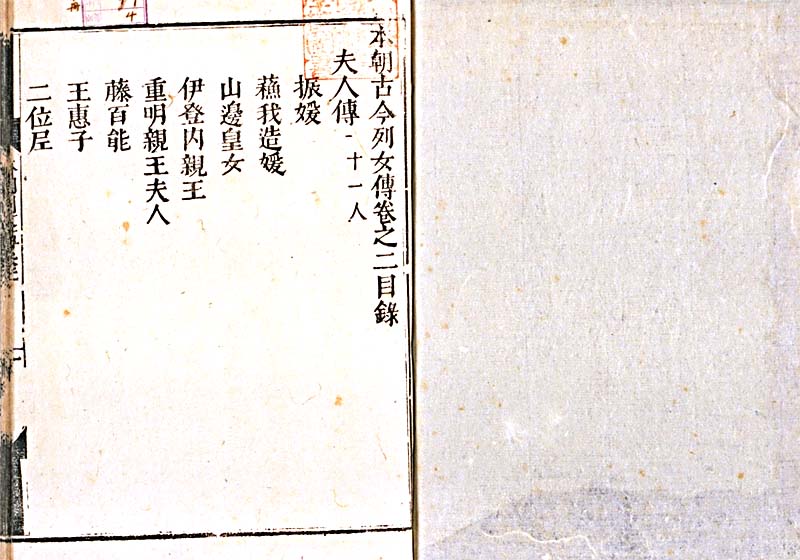 本朝古今列女傳卷之二目錄
夫人傳 十一人
振媛
蘓我造媛
山邊皇女
伊登内親王
重明親王夫人
藤百能
王惠子
二位尼